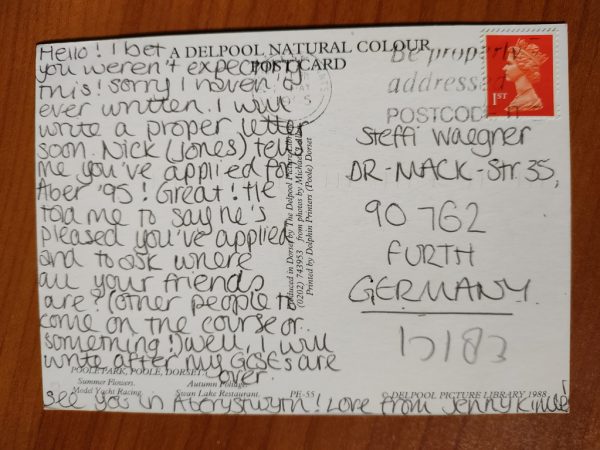 Hello! I bet
you weren't expecting
this! sorry I haven't
ever written. I will
write a proper letter
soon. Nick (Jones) tells
me you've applied for
Aber '95! Great! He
told me to say he's
pleased you've applied
and to ask where
all your friends
are? (other people to
come on the course or
something!) Well, I will
write after my GCSEs are
over.
See you in Aberystwyth! Love from Jenny
A DELPOOL NATURAL COLOUR
POST CARD
Be properly
addressed
POSTCODE it
1ST
Steffi Waegner
DR-MACK-Str. 35,
90 762
FURTH
GERMANY.
Produced in Dorset by The Delpool Picture
(0202) 743953 from photos by Michael
Printed by Delphin Printers (Poole) Dorset
POOLE PARK, POOLE, DORSET
Summer Flowers. Autumn Foliage.
Model Yacht Racing. Swan Lake Restaurant.
PE-55
© DELPOOL PICTURE LIBRARY 1988